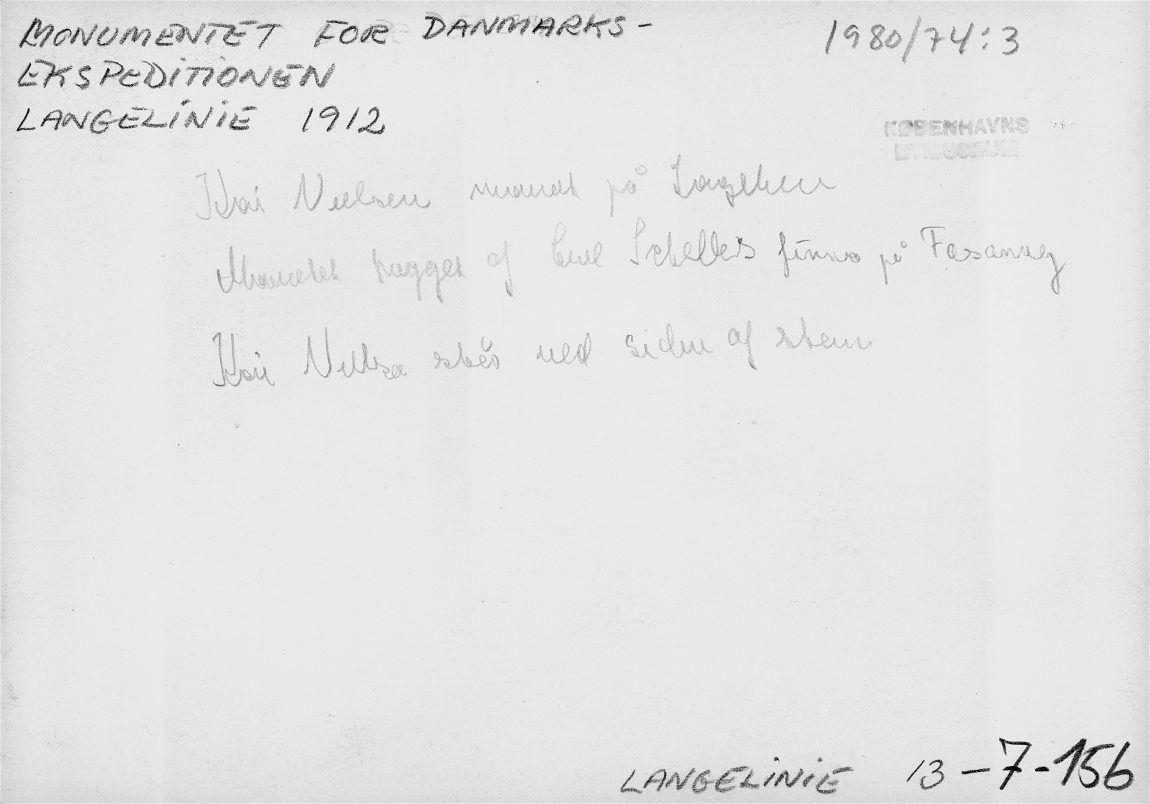 MONUMENTET FOR DANMARKS-
EKSPEDITIONEN
LANGELINIE 1912
1980/74:3
KØBENHAVNS
BYMUSEUM
Kai Nielsen på
hugget af Schelles firma på Fasanvej
Kai Nielsen står ved siden af sten
LANGELINIE 13-7-156